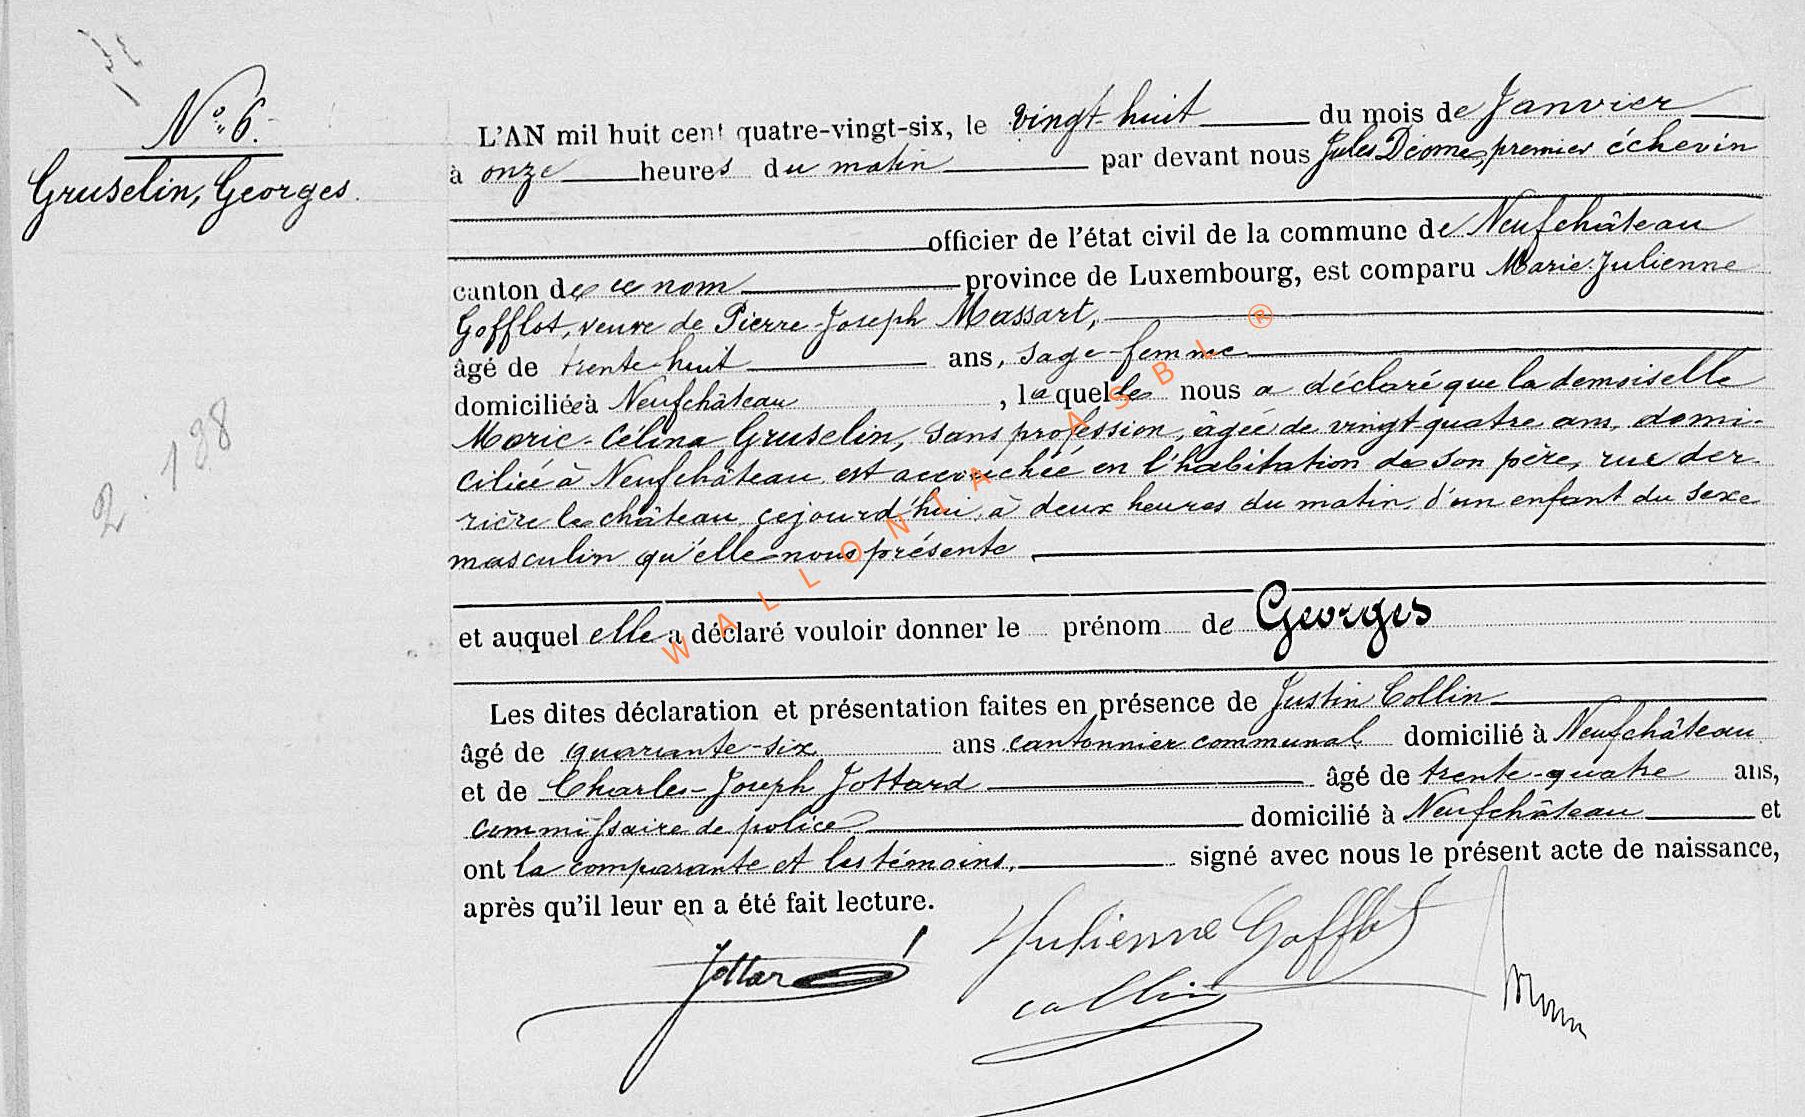 N° 6.
Gruselin, Georges.
2. 138
L'AN mil huit cent quatre-vingt-six, le vingt-huit du mois de Janvier
à onze heures du matin par devant nous Jules Déome, premier échevin
officier de l'état civil de la commune de Neufchâteau
canton de ce nom province de Luxembourg, est comparu Marie-Julienne
Gofflot, veuve de Pierre-Joseph Massart,
âgé de trente-huit ans, sage-femme
domiciliée à Neufchâteau, laquelle nous a déclaré que la demoiselle
Marie-Célina Gruselin, sans profession, âgée de vingt-quatre ans, domi-
ciliée à Neufchâteau est accouchée en l'habitation de son père, rue der-
rière le château, cejourd'hui, à deux heures du matin, d'un enfant du sexe
masculin qu'elle nous présente
et auquel elle a déclaré vouloir donner le prénom de Georges
Les dites déclaration et présentation faites en présence de Justin Collin
âgé de quarante-six ans cantonnier communal domicilié à Neufchâteau
et de Charles-Joseph Jottard âgé de trente-quatre ans,
commissaire de police domicilié à Neufchâteau et
ont la comparante et les témoins, signé avec nous le présent acte de naissance,
après qu'il leur en a été fait lecture.
Jottard
Julienne Gofflot
Collin
WALLONIA ASBL ®